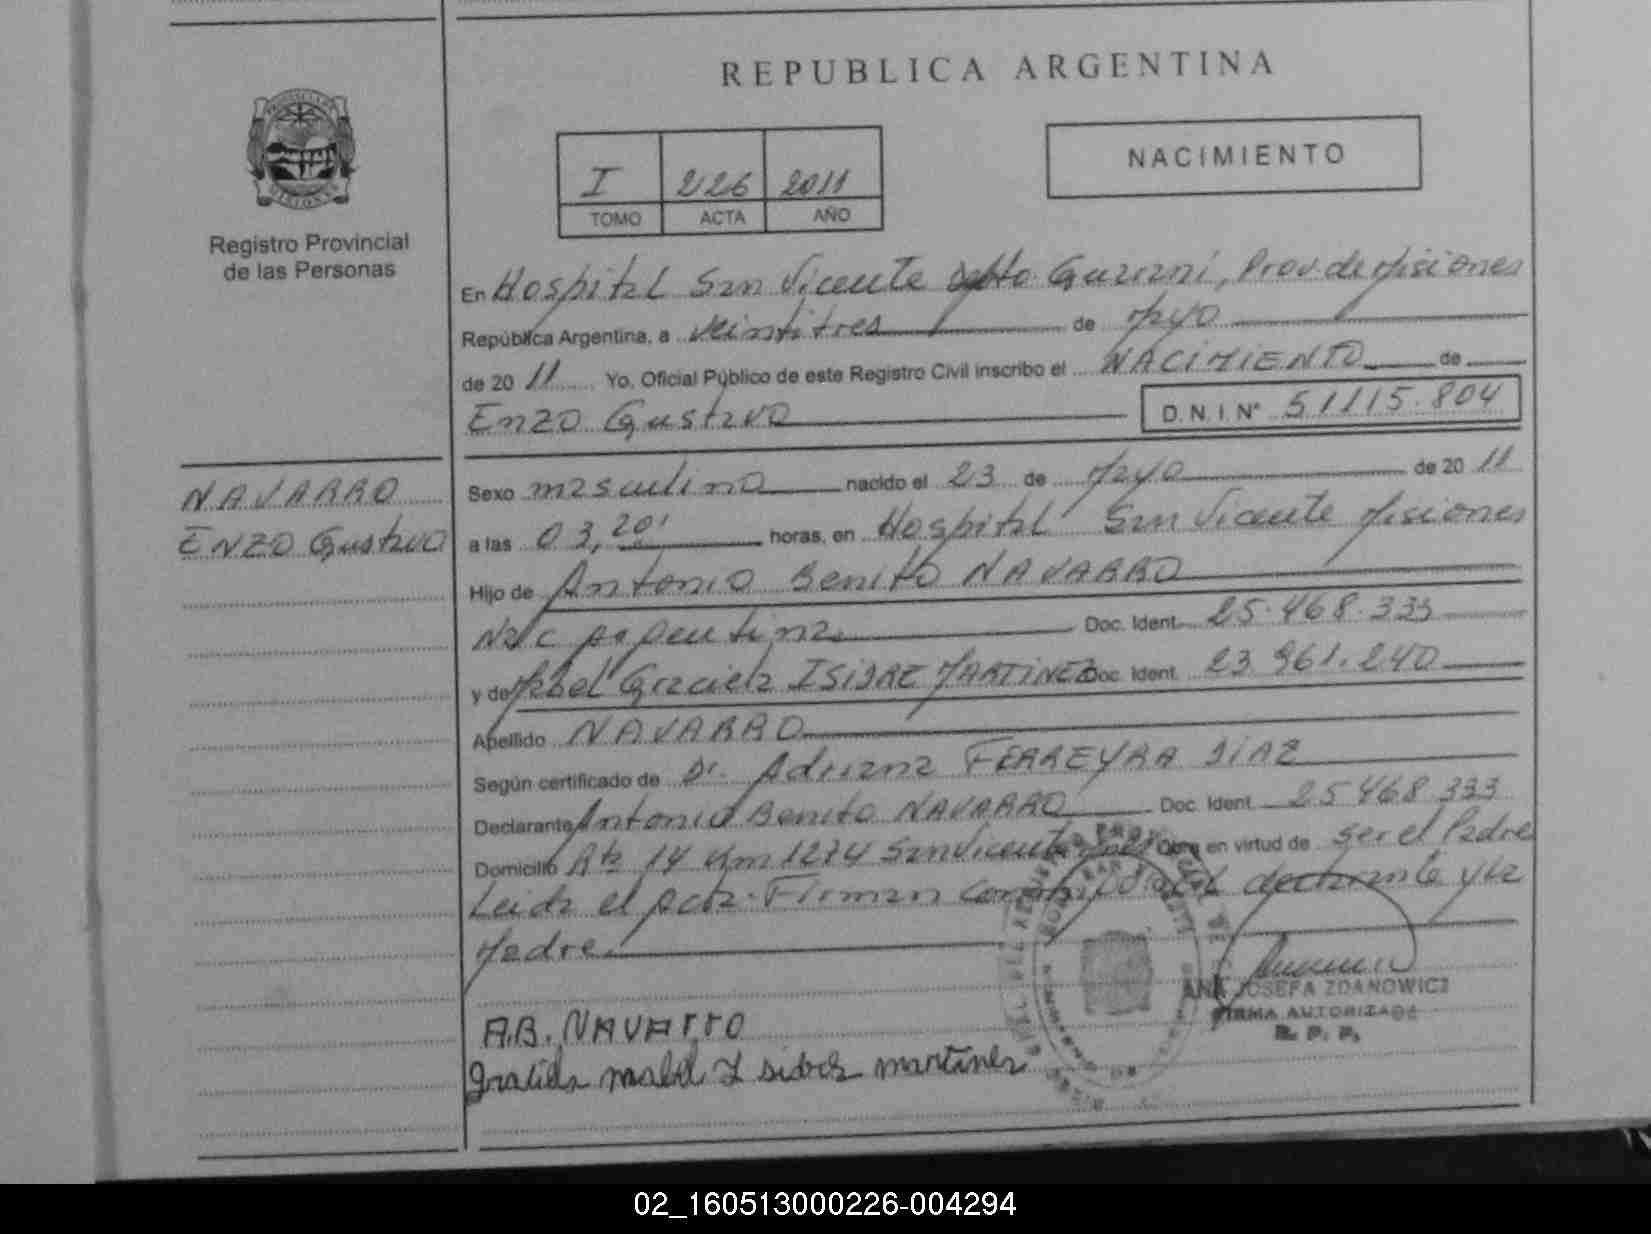 REPUBLICA ARGENTINA
NACIMIENTO
I 226 2011
TOMO ACTA AÑO
Registro Provincial
de las Personas
En Hospital San Vicente Dpto. Guaraní, Prov. de Misiones
República Argentina, a veintitres de Mayo
de 20 11 Yo, Oficial Público de este Registro Civil inscribo el NACIMIENTO de
Enzo Gustavo D.N.I. N° 51115.804
NAVARRO
ENZO Gustavo
Sexo masculino nacido el 23 de Mayo de 20 11
a las 03,20' horas, en Hospital San Vicente Misiones
Hijo de Antonio Benito NAVARRO
Nac Argentina Doc. Ident. 25.468.333
y de Mabel Graciela ISIDRE MARTINEZ Doc. Ident. 23.961.240
Apellido NAVARRO
Según certificado de Dr. Adriana FERREYRA DIAZ
Declarante Antonio Benito NAVARRO Doc. Ident. 25468333
Domicilio Rta 14 Km 1274 San Vicente Mnes Obra en virtud de ser el Padre
Leida el Acta. Firman declarante y la
Madre
ANA JOSEFA ZDANOWICZ
FIRMA AUTORIZADA
R. P. P.
A.B. NAVArrO
graciela mabel martines
02_160513000226-004294